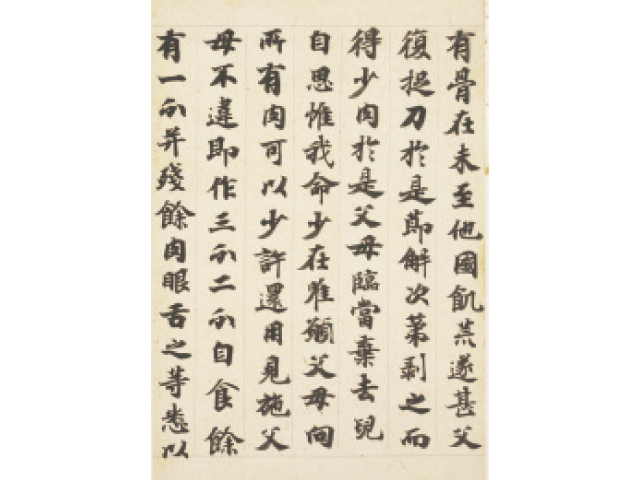 有骨在未至他國飢荒遂甚父
復捉刀於是即解次第剥之而
得少肉於是父母臨當棄去兒
自思惟我命少在唯願父母向
所有肉可以少許還用見施父
母不違即作三分二分自食餘
有一分并殘餘肉眼舌之等悉以